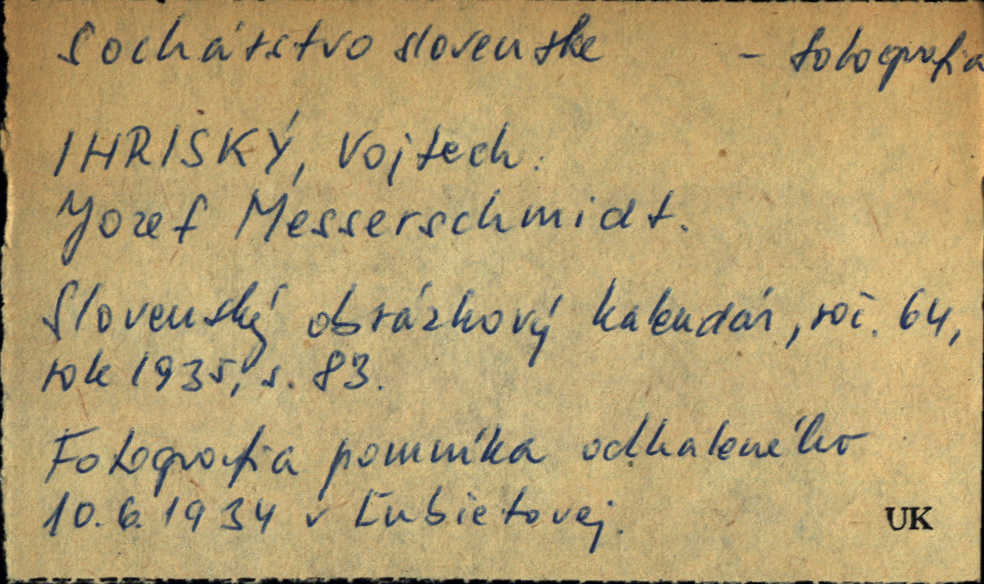 Sochárstvo slovenske - fotografia
IHRISKÝ, Vojtech:
Jozef Messerschmidt.
Slovenský obrázkový kalendár, roč. 64,
rok 1935, s. 83.
Fotografia pomníka odhaleného
10.6.1934 v Ľubietovej.
UK